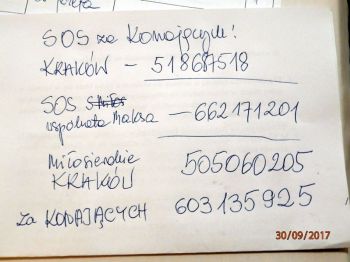 SOS za Konającym!
KRAKÓW - 518687518
SOS
wspólnota Maksa - 662171201
Miłosierdzie 505060205
KRAKÓW
za KONAJĄCYCH 603135925
30/09/2017